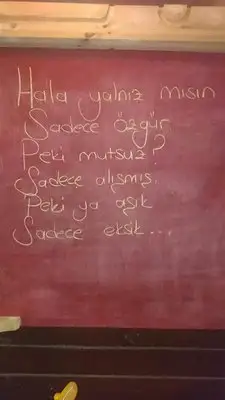 Hala yalnız mısın
Sadece özgür
Peki mutsuz?
Sadece alışmış.
Peki ya aşık
Sadece eksik...